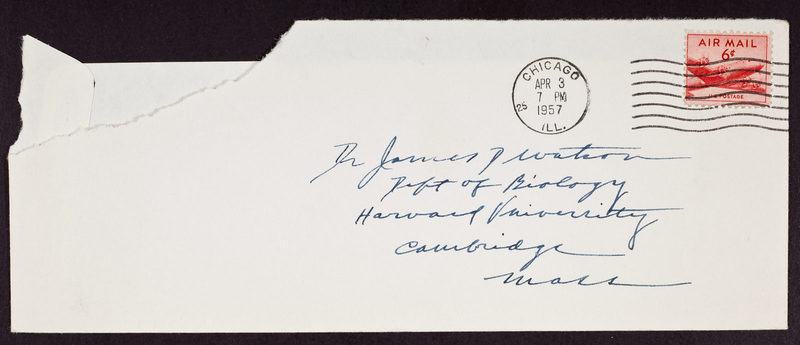 AIR MAIL
6¢
U.S. POSTAGE
CHICAGO
APR 3
7 PM
1957
25
ILL.
Dr James D Watson
Dept of Biology
Harvard University
Cambridge
Mass